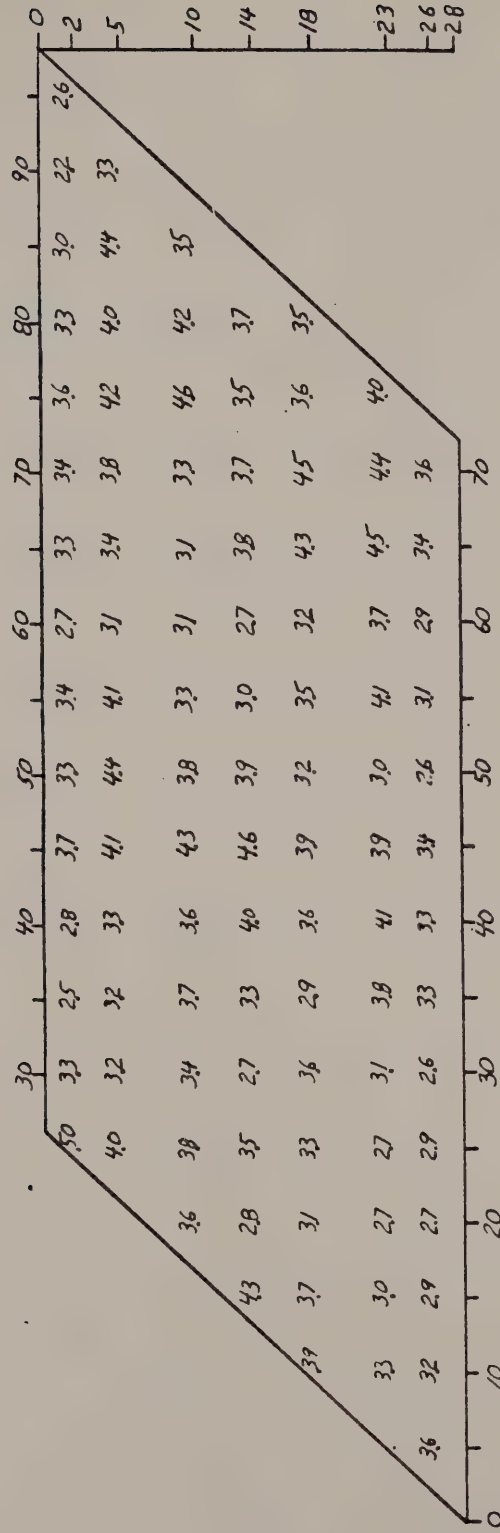 30 40 50 60 70 80 90 0
5.0 3.3 2.5 2.8 3.7 3.3 3.4 2.7 3.3 3.4 3.6 3.3 3.0 2.2 2.6 2
4.0 3.2 3.2 3.3 4.1 4.4 4.1 3.1 3.4 3.8 4.2 4.0 4.4 3.3 5
3.6 3.8 3.4 3.7 3.6 4.3 3.8 3.3 3.1 3.1 3.3 4.6 4.2 3.5 10
4.3 2.8 3.5 2.7 3.3 4.0 4.6 3.9 3.0 2.7 3.8 3.7 3.5 3.7 14
3.9 3.7 3.1 3.3 3.6 2.9 3.6 3.9 3.2 3.5 3.2 4.3 4.5 3.6 3.5 18
3.3 3.0 2.7 2.7 3.1 3.8 4.1 3.9 3.0 4.1 3.7 4.5 4.4 4.0 23
3.6 3.2 2.9 2.7 2.9 2.6 3.3 3.3 3.4 2.6 3.1 2.9 3.4 3.6 26
28
0 10 20 30 40 50 60 70